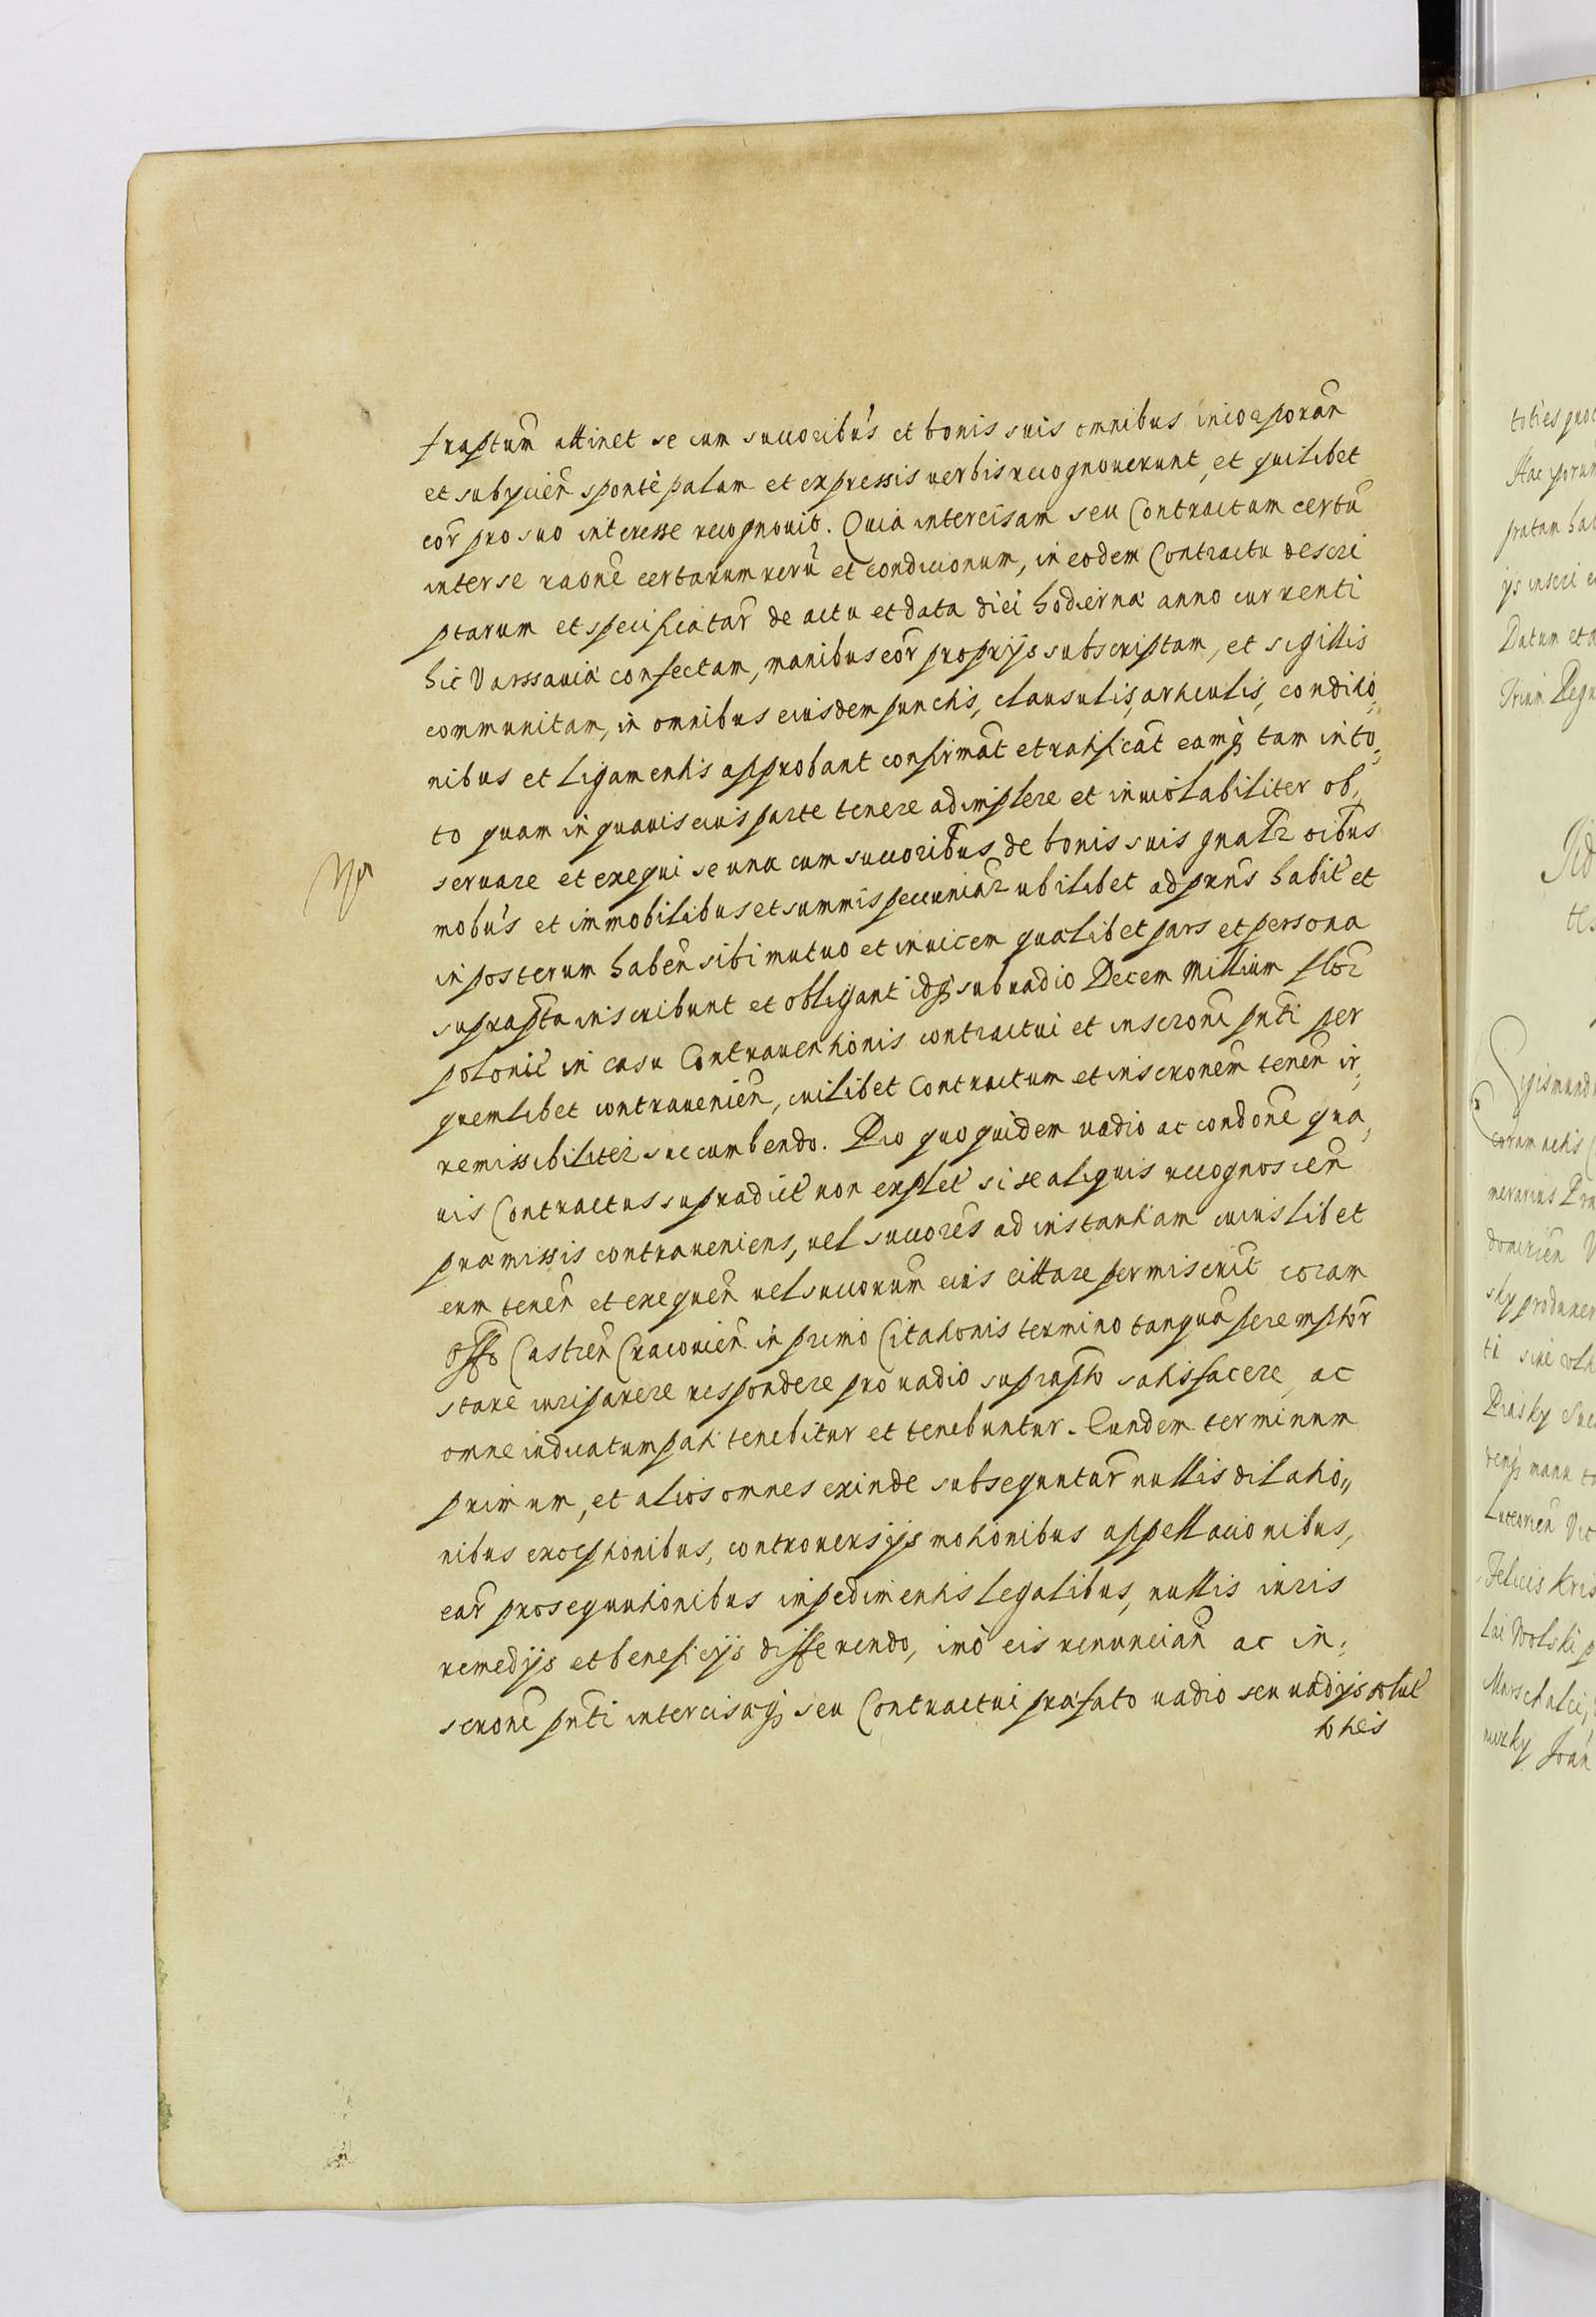 fraptum attinet se cum succoribus et bonis suis omnibus incorporan̄
et subycien̄ sponte palam et expressis verbis recognoverunt, et quilibet
eor̄ pro suo interesse recognovit. Quia intercisam seu Contractum certū
inter se raōne certarum rerū et condicionum, in eodem Contractu descri
ptarum et specificatar̄ de actu et data diei hodiernæ anno currenti
hic Varssaviæ confectam, manibus eor̄ proprijs subscriptam, et sigillis
communitam, in omnibus eiusdem punctis, clausulis, articulis, conditio,
nibus et ligamentis approbant confirmāt et ratificāt eamq̄ tam in to,
to quam in quavis eius parte tenere adimplere et inviolabiliter ob,
servare et exequi se una cum succoribus de bonis suis gnalr̄ oībus
mobus et immobilibus et summis pecuniar̄ ubilibet ad prn̄s habit̄ et
in posterum haben̄ sibi mutuo et invicem quælibet pars et persona
suprapta inscribunt et obligant idq̄ sub vadio Decem Millium flor̄
polonic̄ in casu Contraventionis contractui et inscr̄oni pn̄ti per
quemlibet contravenien̄, cuilibet Contractum et inscr̄onem tenen̄ ir,
remissibiliter succumbendo. Pro quo quidem vadio ac condōne qua,
vis Contractus supradict̄ non explet̄ si se aliquis recognoscen̄
præmissis contraveniens, vel succores ad instantiam cuiuslibet
eum tenen̄ et exequen̄ vel succorum eius cittare permiserit coram
Offo Castren̄ Cracovien̄ in primo Citationis termino tanquā peremptor̄
stare iuri parere respondere pro vadio suprapto satisfacere, ac
omne iudicatum pati tenebitur et tenebuntur. Eundem terminum
primum, et alios omnes exinde subsequuntur̄ nullis dilatio,,
nibus exceptionibus, controversijs motionibus appellacionibus,
ear̄ prosequutionibus impedimentis legalibus, nullis iuris
remedijs et beneficijs differendo, imò eis renuncian̄ ac in,
scr̄one pn̄ti intercisæq̄ seu Contractui præfato vadio seu vadijs solut̄
toties